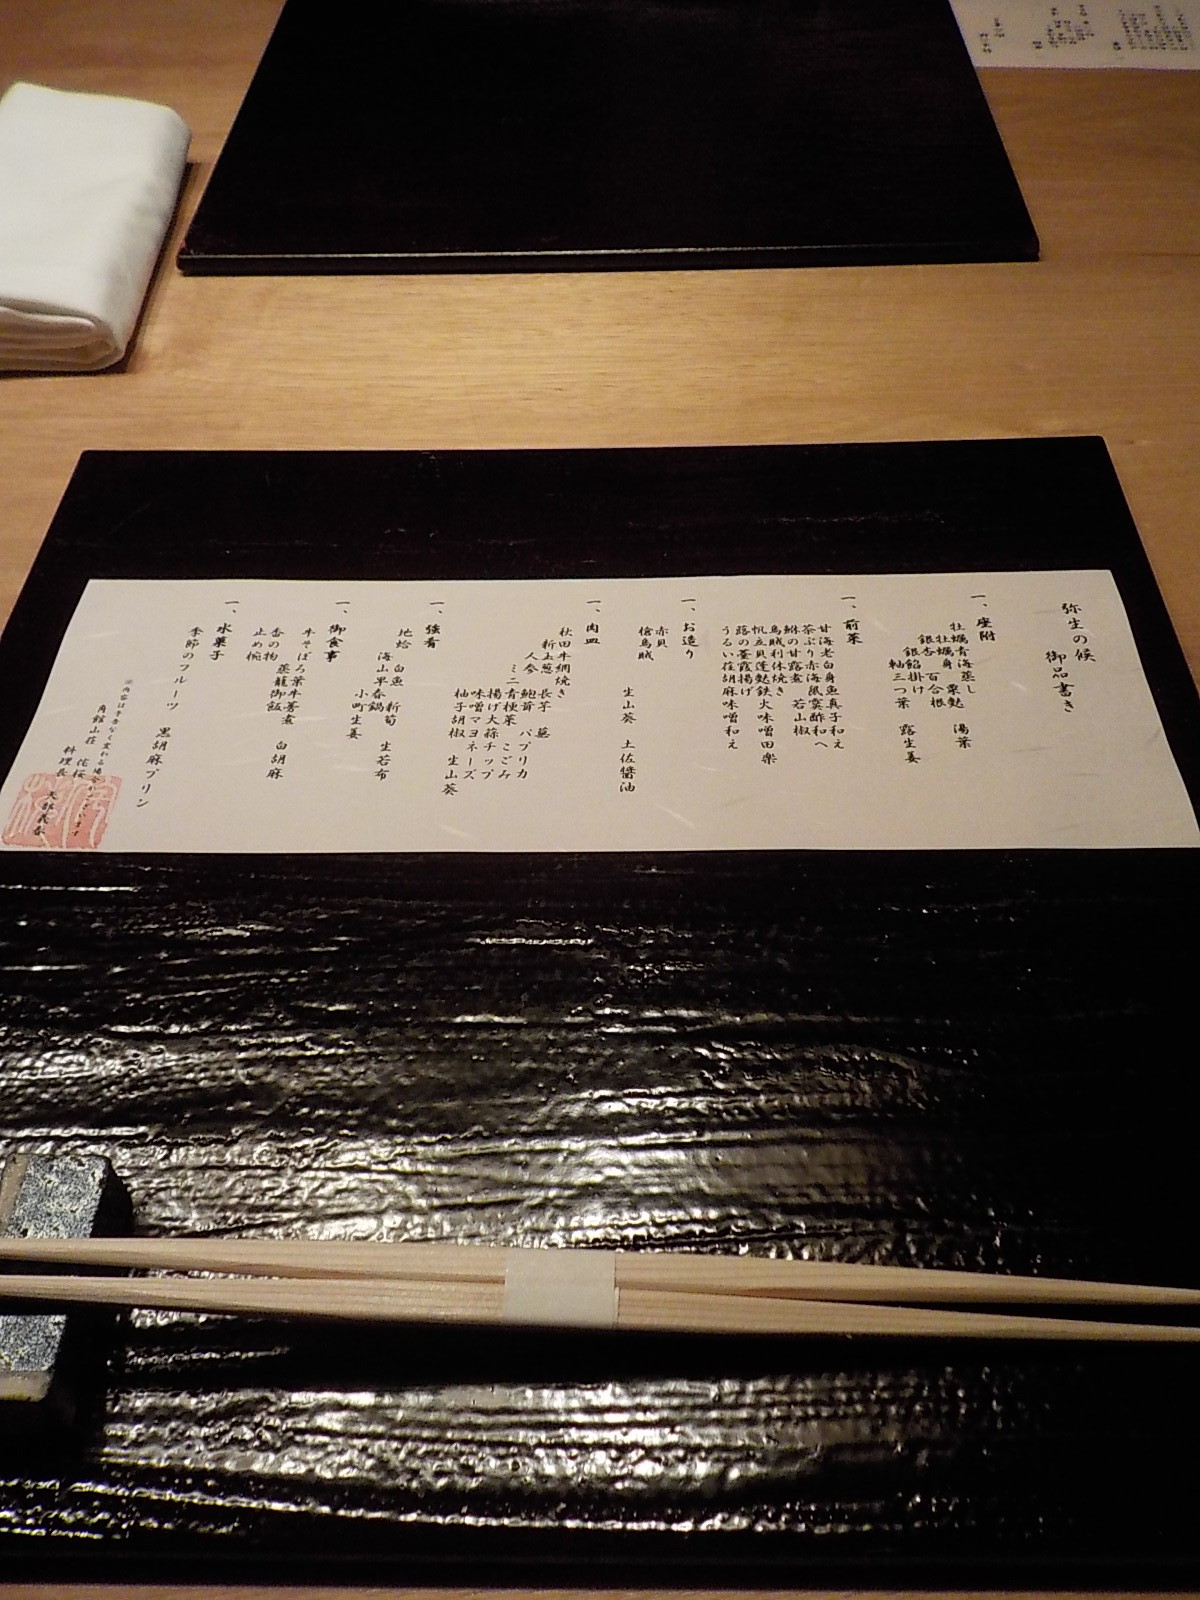 弥生の候
御品書き
一、座附
牡蠣青海蒸し
牡蠣身 粟麩 湯葉
銀杏 百合根
銀餡掛け
軸三つ葉 露生姜
一、前菜
甘海老白身魚真子和え
茶ぶり赤海鼠霙酢和へ
鮴の甘露煮 若山椒
烏賊利休焼き
帆立貝蓬麩鉄火味噌田楽
蕗の薹霞揚げ
うるい荏胡麻味噌和え
一、お造り
赤貝
槍烏賊
生山葵 土佐醤油
一、肉皿
秋田牛網焼き
新玉葱 長芋
人参 鮑茸 パプリカ
ミニ青梗菜 こごみ
揚げ大蒜チップ
味噌マヨネーズ
柚子胡椒 生山葵
一、強肴
地蛤 白魚 新筍 生若布
海山早春鍋
小町生姜
一、御食事
牛そぼろ葉牛蒡煮 白胡麻
蒸籠御飯
香の物
止め椀
一、水菓子
季節のフルーツ 黒胡麻プリン
※内容は予告なく変わる場合がございます
角館山荘 侘桜
料理長